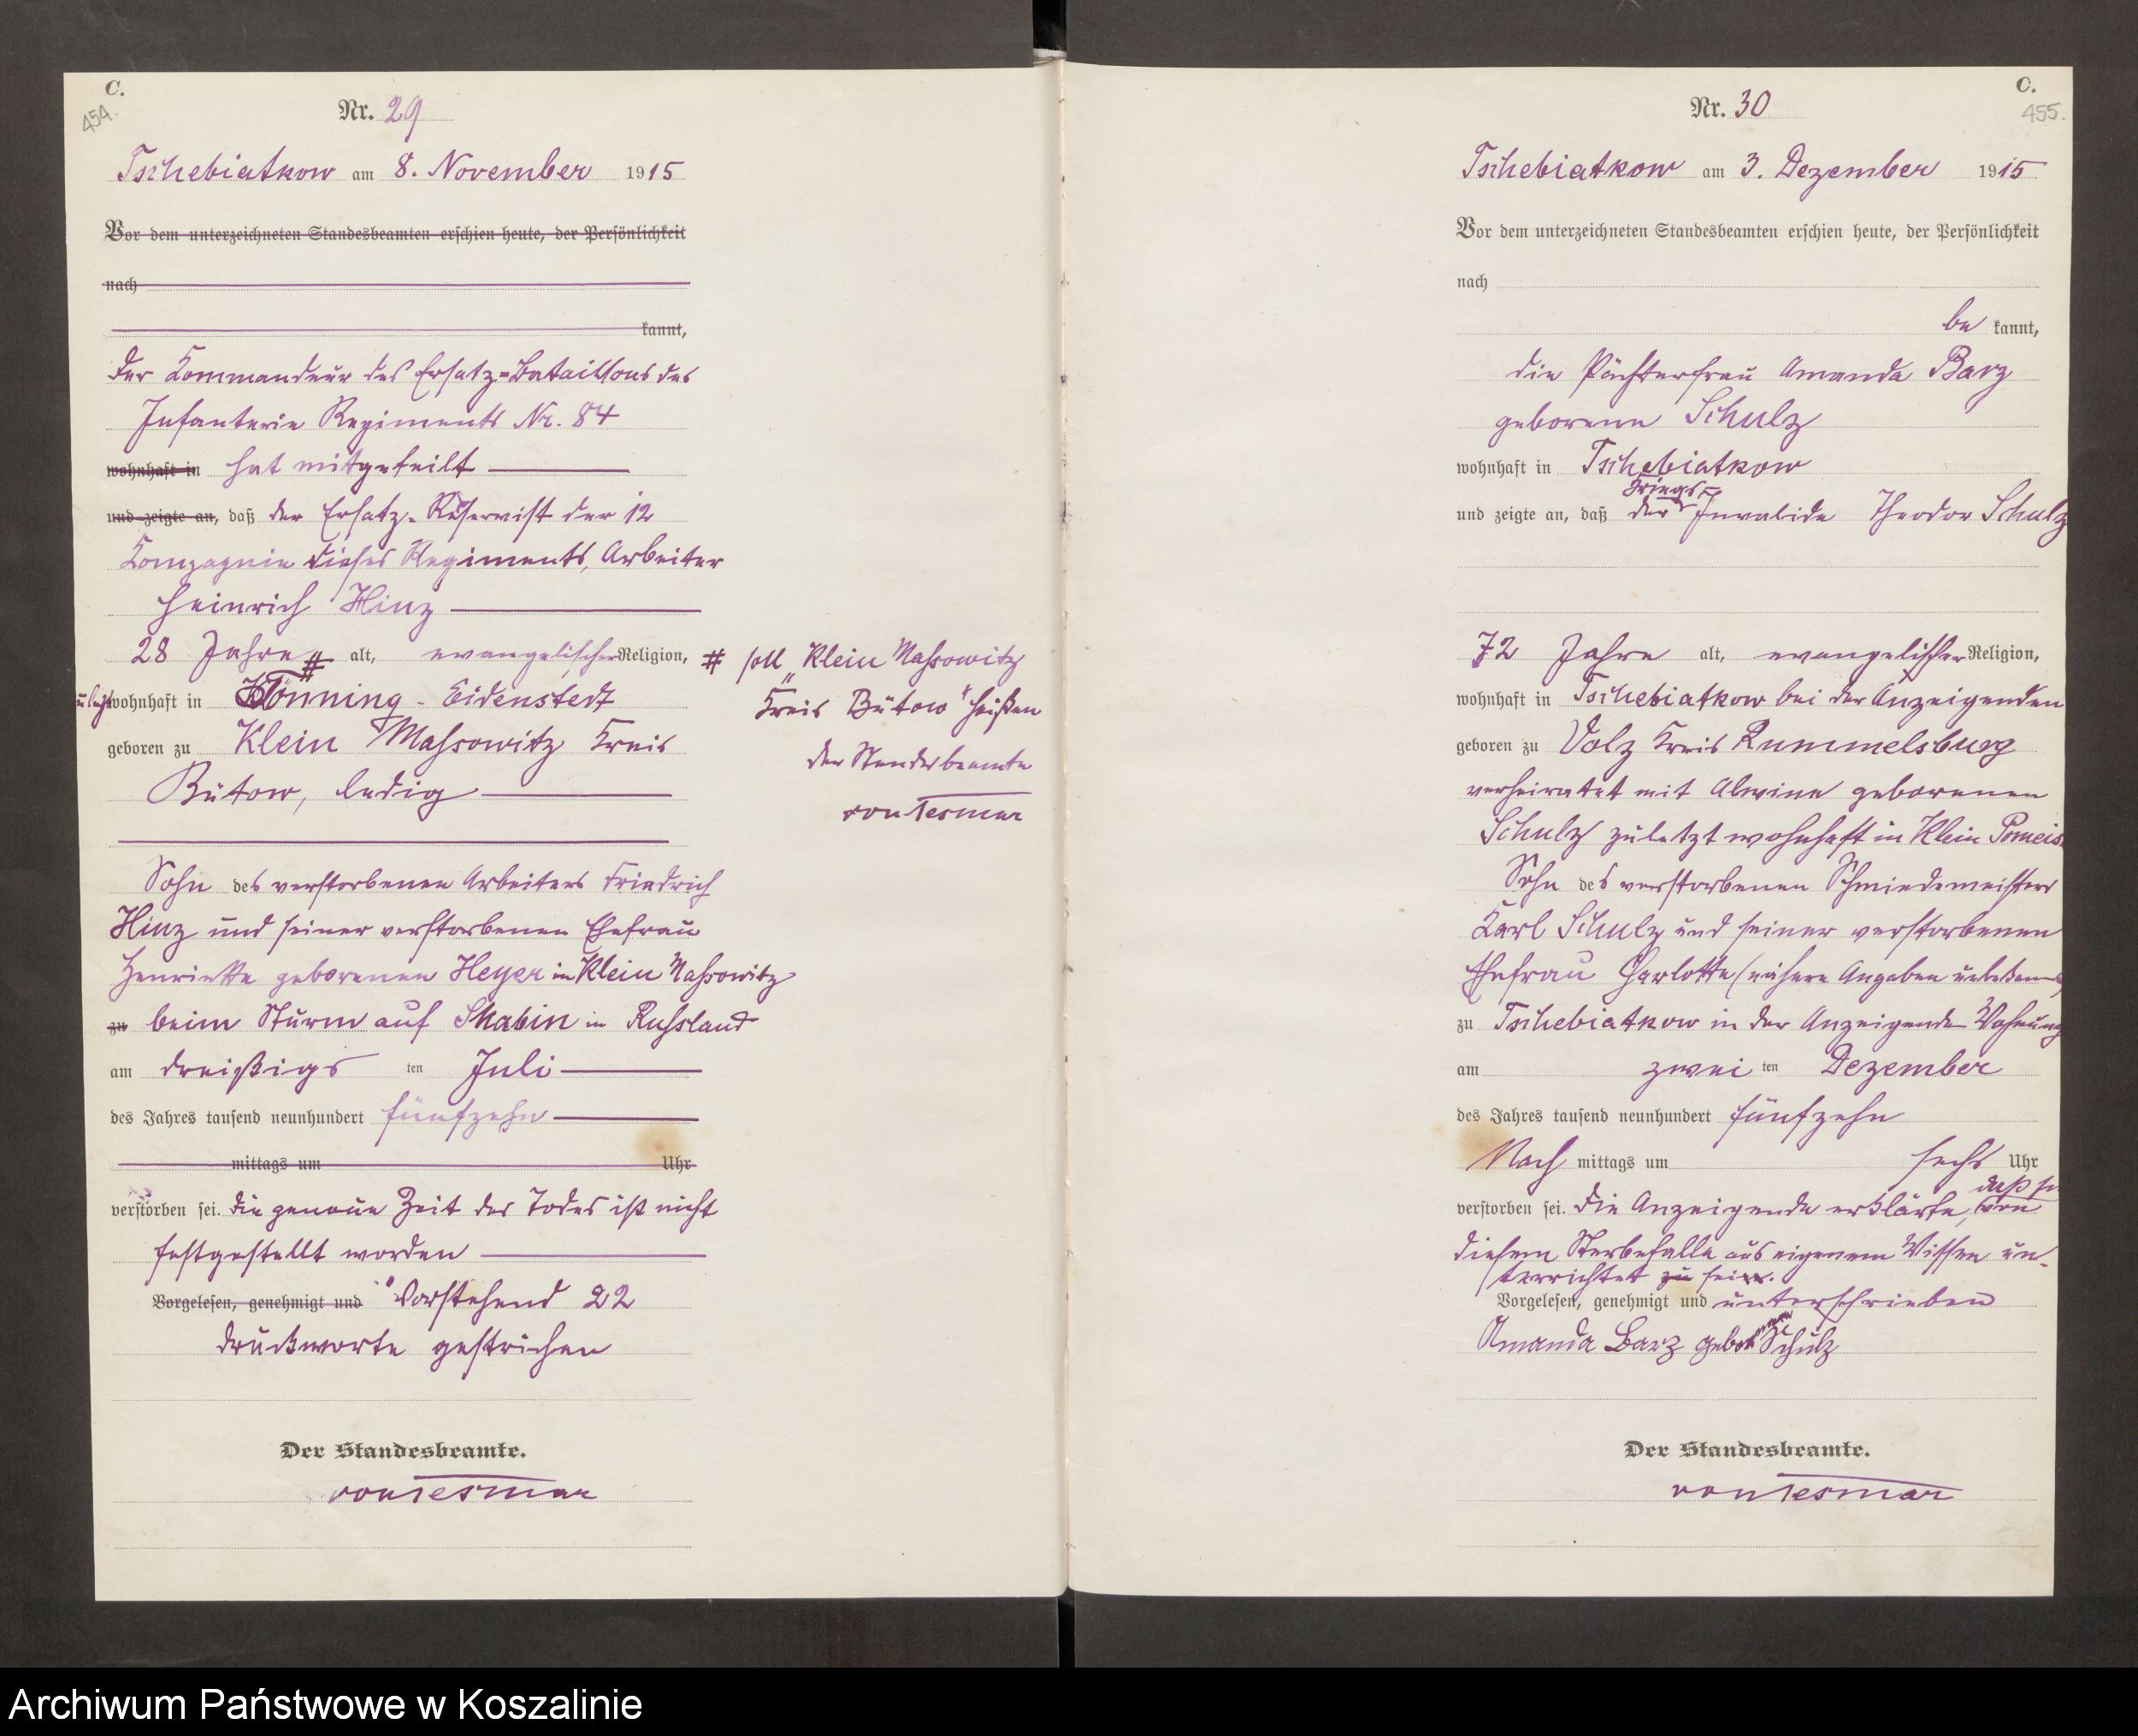 C.
454.
Nr. 29
Tschebiatkow am 8. November 1915
Vor dem unterzeichneten Standesbeamten erschien heute, der Persönlichkeit
nach
kannt,
Der Kommandeur des Ersatz-Bataillons des
Infanterie Regiments Nr. 84
wohnhaft in hat mitgeteilt
und zeigte an, daß der Ersatz-Reservist der 12
Kompagnie dieses Regiments, Arbeiter
Heinrich Hinz
28 Jahre # alt, evangelischer Religion,
wohnhaft in Tönning-Eidenstedt
geboren zu Klein Massowitz Kreis
Bütow, ledig
Sohn des verstorbenen Arbeiters Friedrich
Hinz und seiner verstorbenen Ehefrau
Henriette geborenen Heyer in Klein Massowitz
zu beim Sturm auf Skabin in Russland
am dreißigs ten Juli
des Jahres tausend neunhundert fünfzehn
mittags um Uhr
verstorben sei. Die genaue Zeit des Todes ist nicht
festgestellt worden
Vorgelesen, genehmigt und Vorstehend 22
Druckworte gestrichen
Der Standesbeamte.
von Tesmar
# soll „Klein Massowitz
Kreis Bütow" heißen
der Standesbeamte
von Tesmar
C.
455.
Nr. 30
Tschebiatkow am 3. Dezember 1915
Vor dem unterzeichneten Standesbeamten erschien heute, der Persönlichkeit
nach
be kannt,
die Pächterfrau Amanda Barz
geborene Schulz
wohnhaft in Tschebiatkow
Kriegs-
und zeigte an, daß der Invalide Theodor Schulz
72 Jahre alt, evangelischer Religion,
wohnhaft in Tschebiatkow bei der Anzeigenden
geboren zu Volz Kreis Rummelsburg
verheiratet mit Alwine geborenen
Schulz zuletzt wohnhaft in Klein Pomeis
Sohn des verstorbenen Schmiedemeisters
Karl Schulz und seiner verstorbenen
Ehefrau Charlotte (nähere Angaben unbekannt)
zu Tschebiatkow in der Anzeigende Wohnung
am zwei ten Dezember
des Jahres tausend neunhundert fünfzehn
Nach mittags um sechs Uhr
daß sie
verstorben sei. Die Anzeigende erklärte, von
diesem Sterbefalle aus eigenem Wissen un-
terrichtet zu sei.
Vorgelesen, genehmigt und unterschrieben
Amanda Barz geborenen Schulz
Der Standesbeamte.
von Tesmar
Archiwum Państwowe w Koszalinie